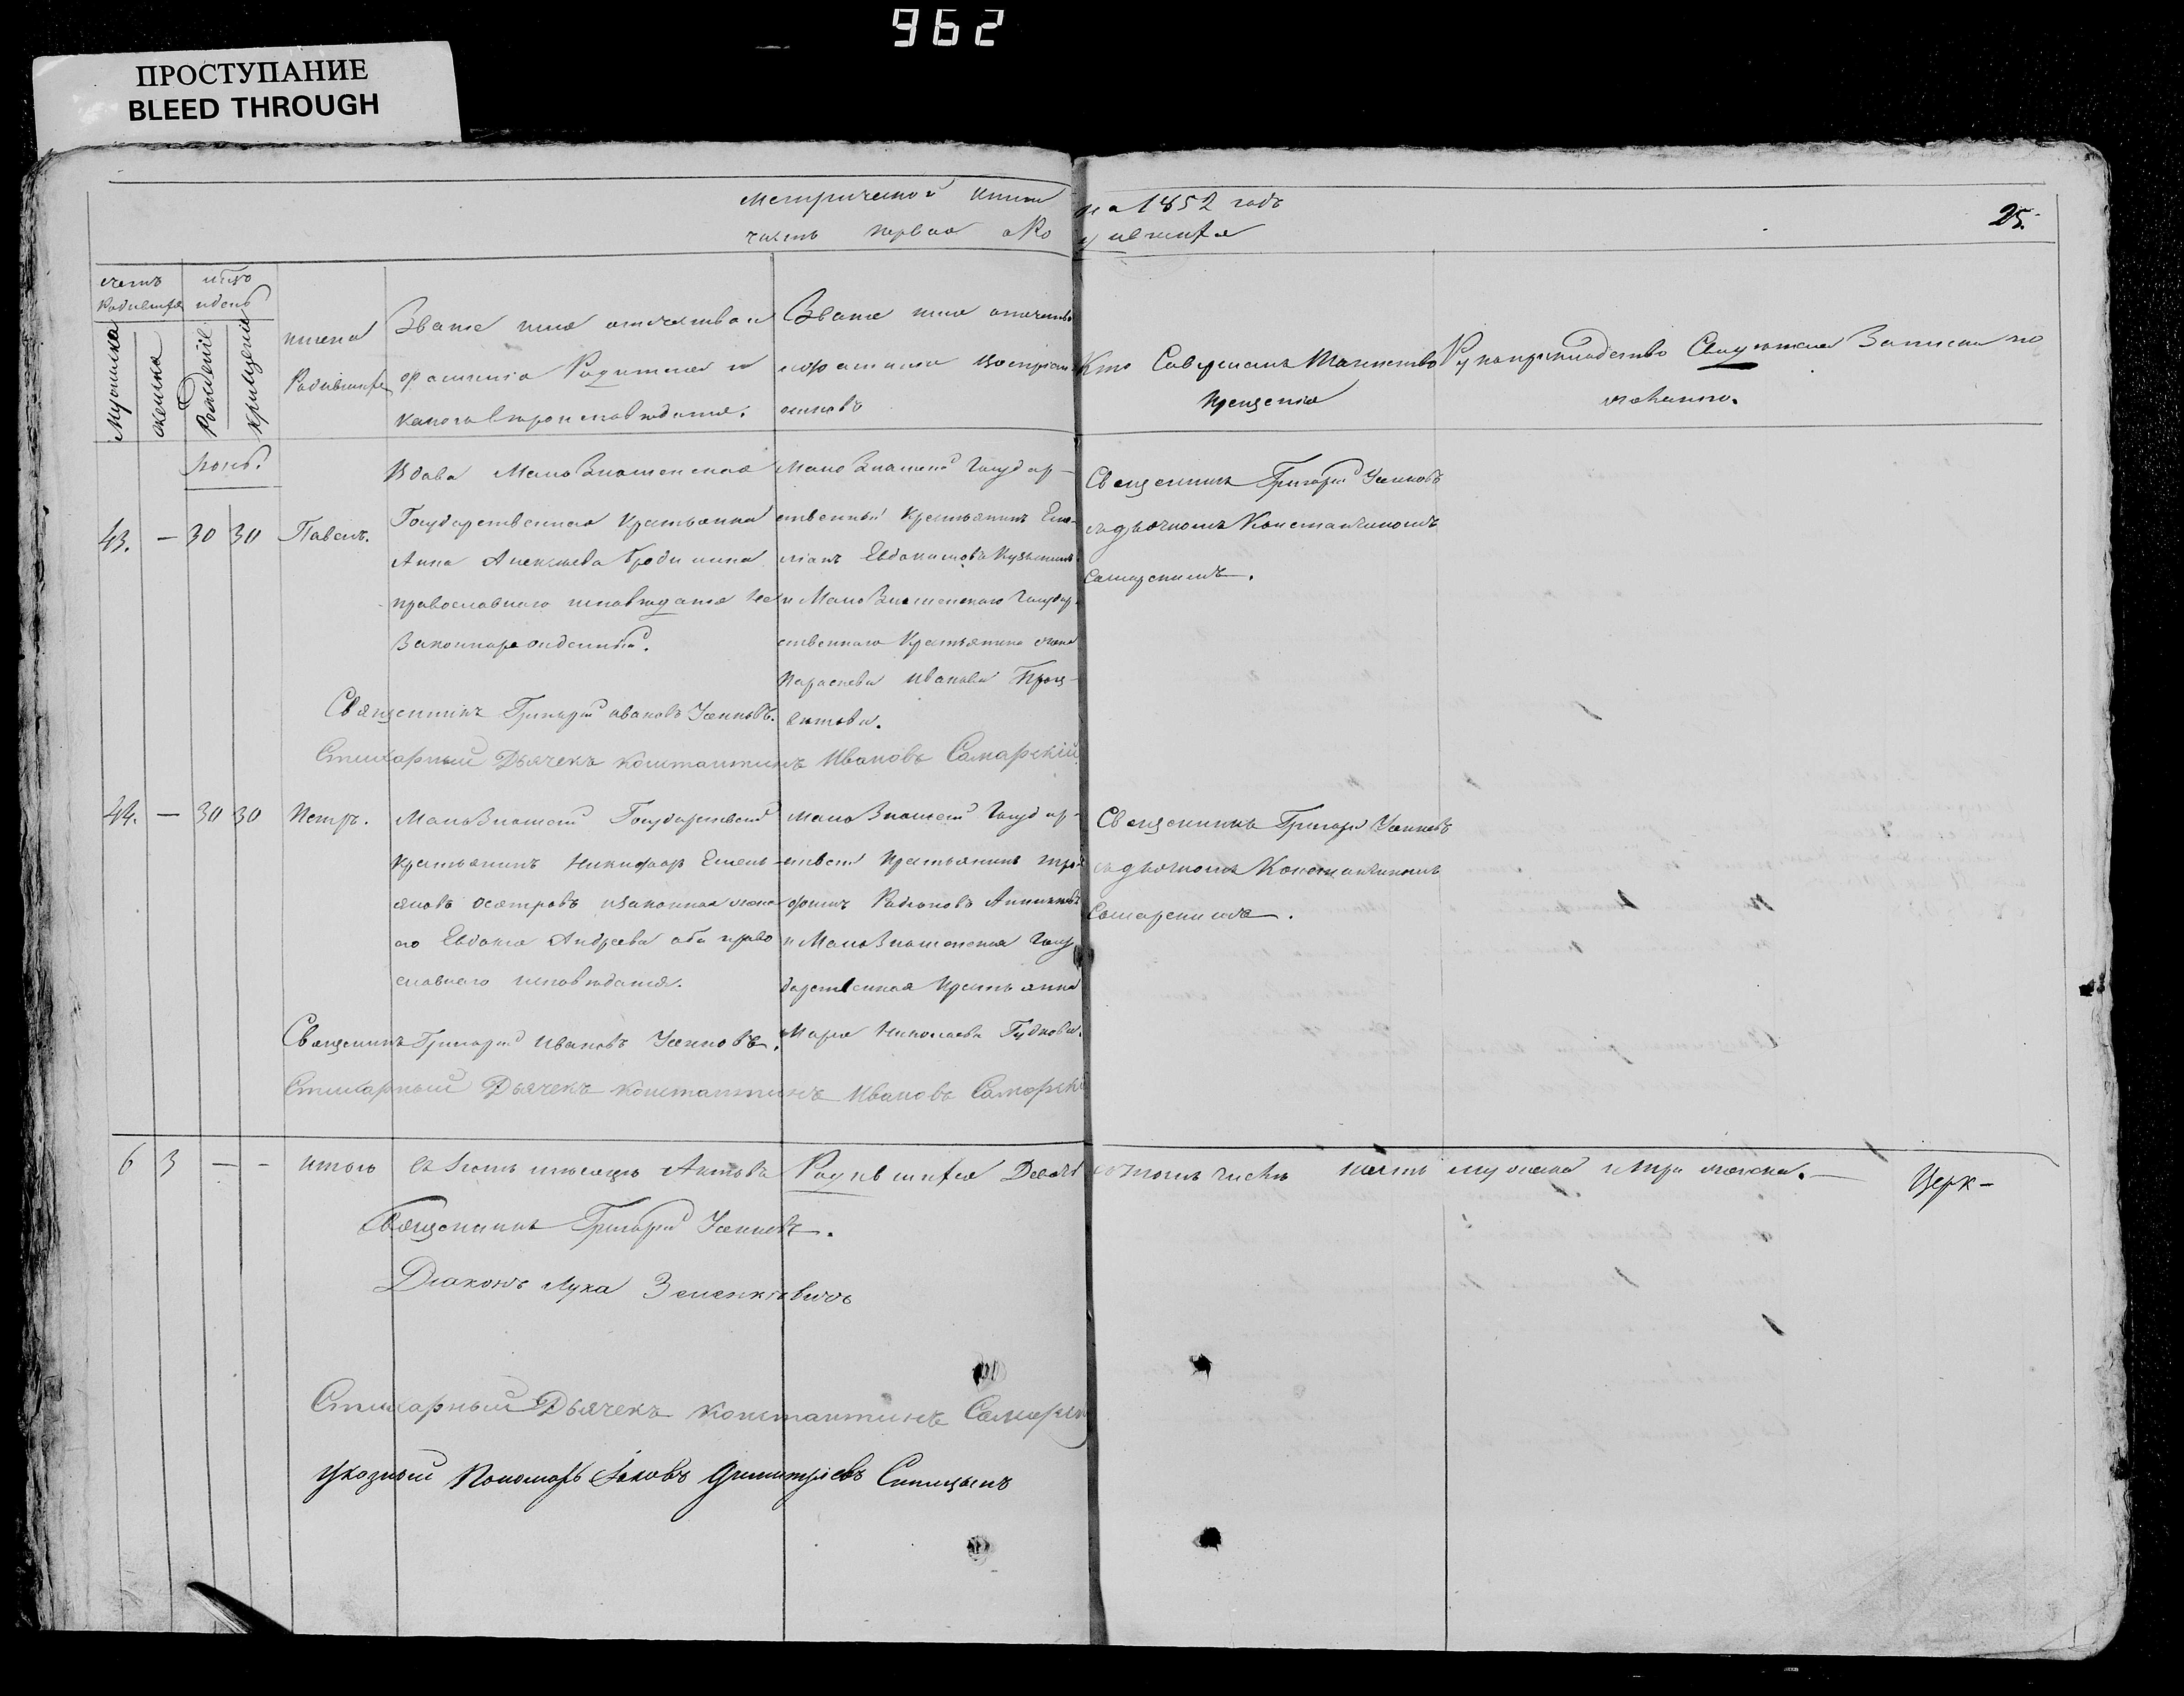 962
ПРОСТУПАНИЕ
BLEED THROUGH
Метрической книги на 1852 годъ
часть первая о родившихся
25.
счетъ родившихся
мѣсяцъ и день
Мужеска
женска
Рожденіе
крещеніе
имена
Родившихся
Званіе имя отчество и
фамилія Родителей и
какого вѣроисповѣданія.
Званіе имя отчество
и фамилія Воспріем-
никовъ
Кто Совершалъ Таинство
крещенія
Рукоприкладство Свидѣтелей Записи по
желанію.
43. — 30 30 Павелъ.
Вдова МалоЗнаменская
Государственная Крестьянка
Анна Алексѣева
православнаго исповѣданія Не
Законнорожденный.
МалоЗнаменскій Государ-
ственный Крестьянинъ Еме-
ліанъ Евдокимовъ Кузьминъ
и МалоЗнаменскаго Государ-
ственнаго Крестьянина жена
Параскева Иванова
Священникъ Григорій Усенковъ
съ дьячкомъ Константиномъ
Самарскимъ.
Священникъ Григорій Ивановъ Усенковъ.
Стихарный Дьячекъ Константинъ Ивановъ Самарскій
44. — 30 30 Петръ.
МалоЗнаменскій Государственный
Крестьянинъ Никифоръ Емель-
яновъ Осетровъ и законная жена
его Евдокія Андреева оба право
славнаго исповѣданія.
МалоЗнаменскій Государ-
ственный Крестьянинъ Тро-
фимъ Родіоновъ
и МалоЗнаменская Госу
дарственная Крестьянка
Марія Николаева Гудкова.
Священникъ Григорій Усенковъ
съ дьячкомъ Константиномъ
Самарскимъ.
Священникъ Григорій Ивановъ Усенковъ.
Стихарный Дьячекъ Константинъ Ивановъ Самарскій
6 3 — - Итого въ мѣсяцѣ Актовъ Родившихся Девять въ томъ числѣ шесть мужеска и три женска. — Церк-
Священникъ Григорій Усенковъ.
Діаконъ Лука Зеленкевичъ
Стихарный Дьячекъ Константинъ Самарскій
Указный Пономарь Іаковъ Димитріевъ Синицынъ